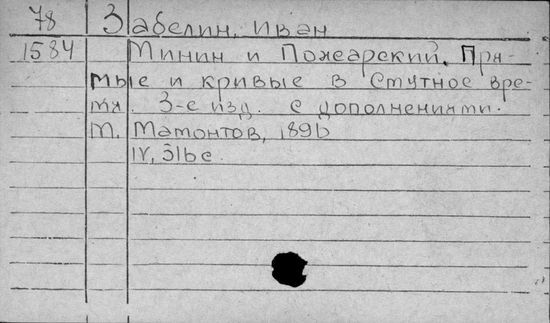 78 Забелин, Иван
1584 Минин и Пожарский. Пря-
мые и кривые в Смутное вре-
мя. 3-е изд. с дополнениями.
М. Мамонтов, 1896
IV, 316 с.